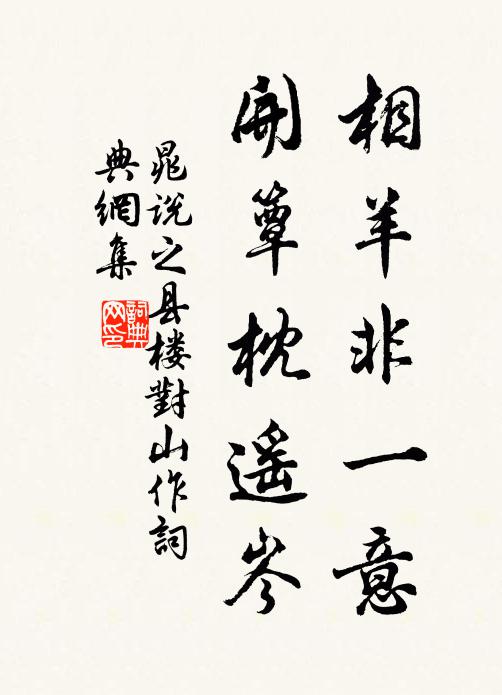 相羊非一意
開簟枕遥岑
晁説之县楼對山作詞
典網集
詞典网印